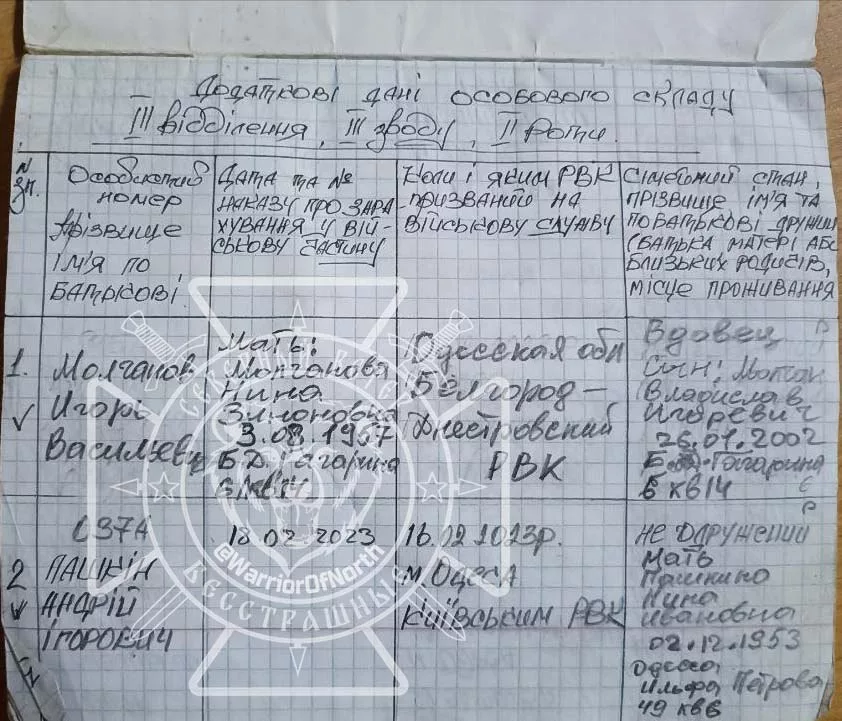 Додаткові дані особового складу
III відділення, III зводу, II роти.
N
зп.
Особистий
номер
Прізвище
ім'я по
батькові
Дата та №
наказу про зара
хування у вій-
ськову частину
Коли і яким РВК
призваний на
військову службу
Сімейний стан,
прізвище ім'я та
побатькові дружини
(батька матері або
близьких родичів,
місце проживання
1.
Молчанов
Игорь
Васильевич
Мать:
Молчанова
Нина
Зиноновна
3.08.1957
Б.Д. Гагарина
кв14
Одесская обл
Белгород-
Днестровский
РВК
Вдовец
Сын: Молчан
Владислав
Игоревич
26.01.2002
Гагарина
6 кв14
2
037А
Пашкін
Андрій
Ігорович
18.02.2023
16.02.2023р.
м.Одеса
Київським РВК
не одружений
Мать
Пашкино
Нина
Ивановна
02.12.1953
Одесса
Ильфа Петрова
49 кв6
@WarriorOfNorth
БЕССТРАШНЫЕ